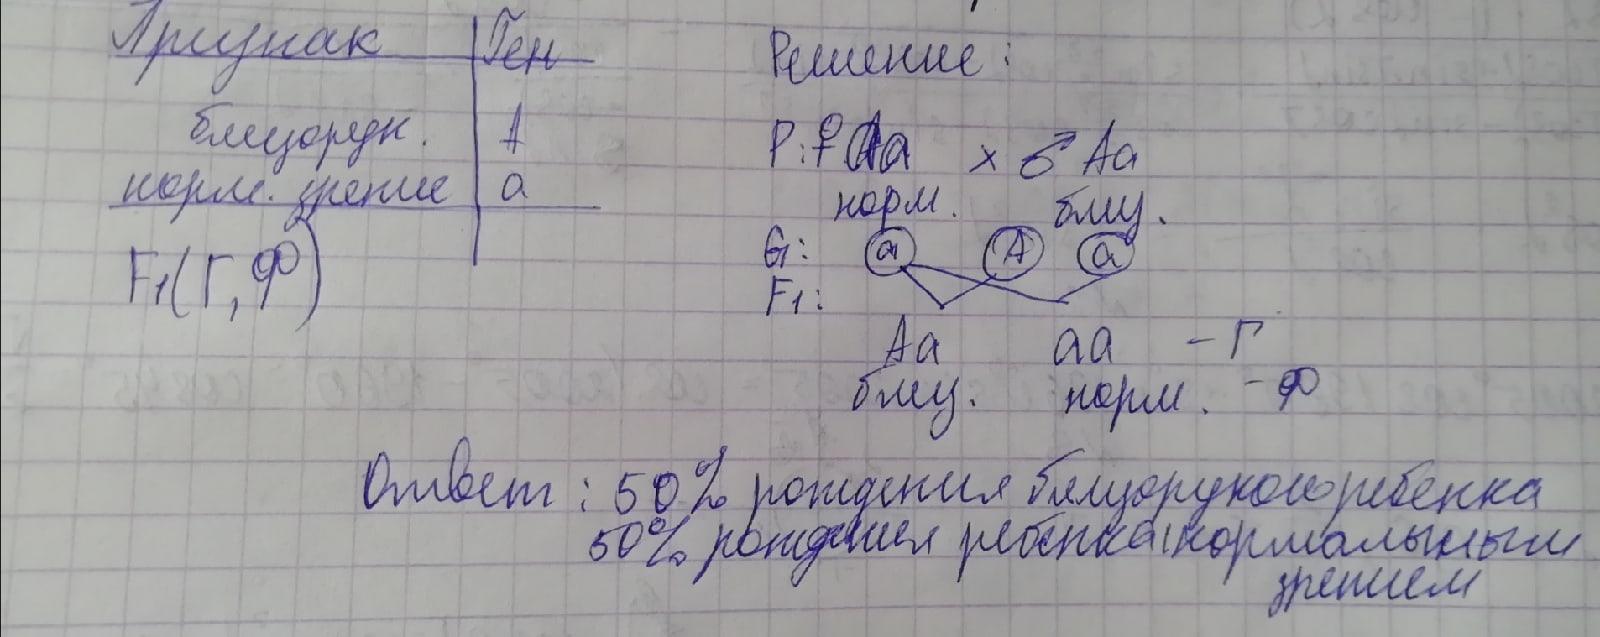 Признак Ген
близорук. А
норм. зрение а
F1(Г, Ф)
Решение:
Р: ♀ аа × ♂ Аа
норм. близ.
G: а А а
F1:
Аа аа - Г
близ. норм. - Ф
Ответ: 50% рождения близорукого ребенка
50% рождения ребенка с нормальным
зрением